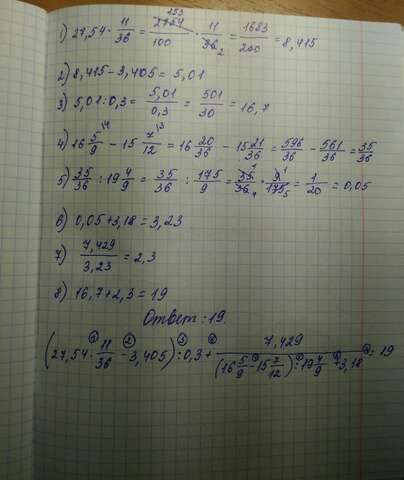 1) 27,54 · 11/36 = 2754/100 · 11/36 = 1683/200 = 8,415
2) 8,415 - 3,405 = 5,01
3) 5,01 : 0,3 = 5,01/0,3 = 501/30 = 16,7
4) 16 5/9 - 15 7/12 = 16 20/36 - 15 21/36 = 596/36 - 561/36 = 35/36
5) 35/36 : 19 4/9 = 35/36 : 175/9 = 35/36 · 9/175 = 1/20 = 0,05
6) 0,05 + 3,18 = 3,23
7) 7,429/3,23 = 2,3
8) 16,7 + 2,3 = 19
Ответ: 19.
(27,54 · 11/36 - 3,405) : 0,3 + 7,429/((16 5/9 - 15 7/12) : 19 4/9 + 3,18) = 19